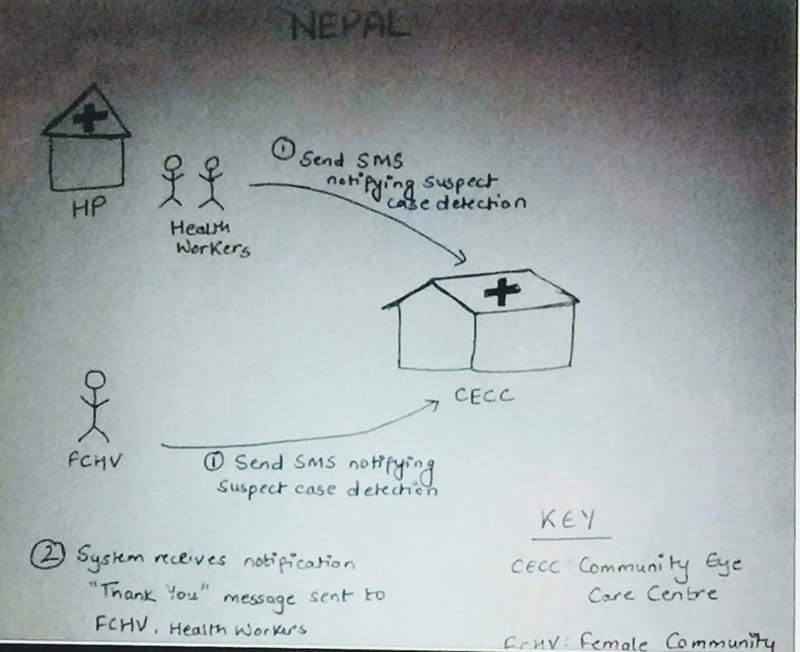 NEPAL
HP
Health
Workers
① Send SMS
notifying suspect
case detection
CECC
FCHV
① Send SMS notifying
suspect case detection
② System receives notification
"Thank You" message sent to
FCHV, Health Workers
KEY
CECC: Community Eye
Care Centre
FCHV: Female Community